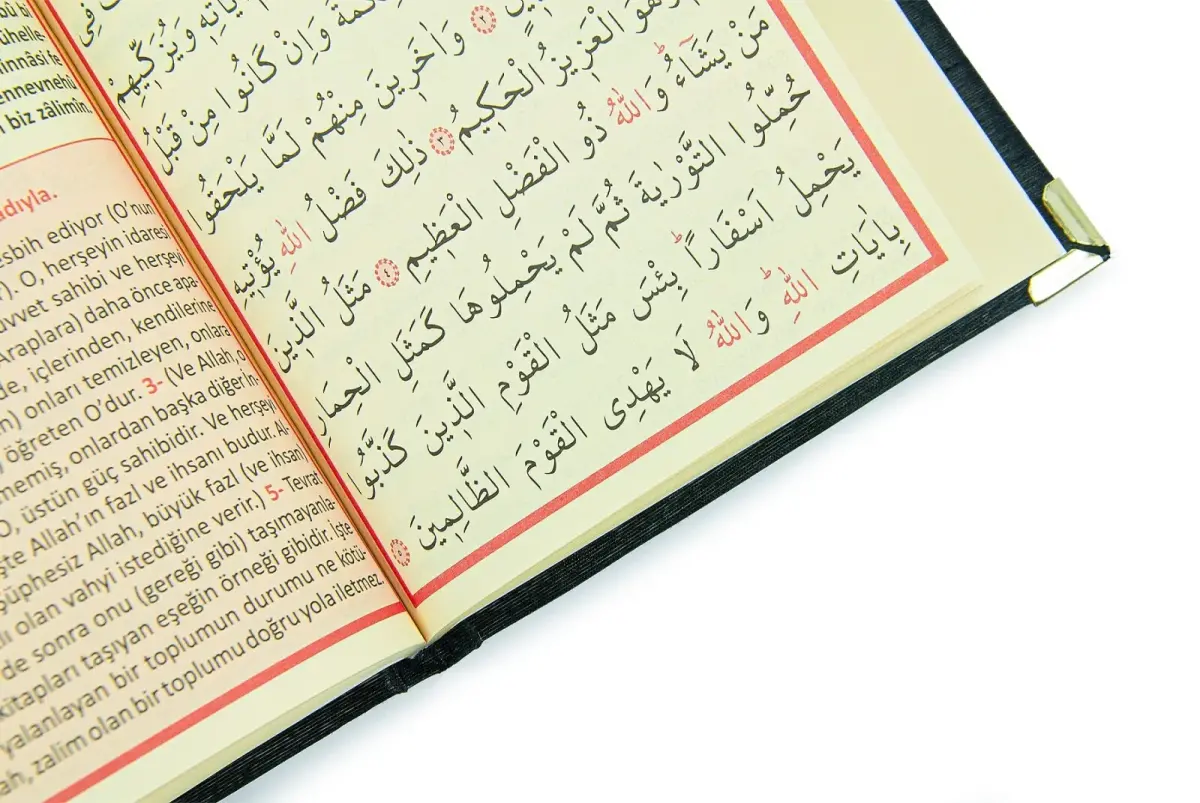 فِي
وَيُزَكِّيهِمْ
وَاِنْ كَانُوا مِنْ قَبْلُ
٢ وَاٰخَرِينَ مِنْهُمْ لَمَّا يَلْحَقُوا
وَهُوَ الْعَزِيزُ الْحَكِيمُ ٣ ذٰلِكَ فَضْلُ اللّٰهِ يُؤْتِيهِ
مَنْ يَشَٓاءُ وَاللّٰهُ ذُو الْفَضْلِ الْعَظِيمِ ٤ مَثَلُ الَّذِينَ
حُمِّلُوا التَّوْرٰيةَ ثُمَّ لَمْ يَحْمِلُوهَا كَمَثَلِ الْحِمَارِ
يَحْمِلُ اَسْفَارًا بِئْسَ مَثَلُ الْقَوْمِ الَّذِينَ كَذَّبُوا
بِاٰيَاتِ اللّٰهِ وَاللّٰهُ لَا يَهْدِى الْقَوْمَ الظَّالِمِينَ ٥
bi
ühelle-
innâsi fe
ennevnehû
biz zâlimîn.
adıyla.
esbih ediyor (O'nun
O, herşeyin idaresi
uvvet sahibi ve herşeyi
Araplara) daha önce apa-
de, içlerinden, kendilerine
onları temizleyen, onlara
öğreten O'dur. 3- (Ve Allah, o
memiş, onlardan başka diğer in-
O, üstün güç sahibidir. Ve herşeyi
şte Allah'ın fazl ve ihsanı budur. Al-
şüphesiz Allah, büyük fazl (ve ihsan)
olan vahyi istediğine verir.) 5- Tevrat
de sonra onu (gereği gibi) taşımayanla-
kitapları taşıyan eşeğin örneği gibidir. İşte
yalanlayan bir toplumun durumu ne kötü-
ah, zalim olan bir toplumu doğru yola iletmez.